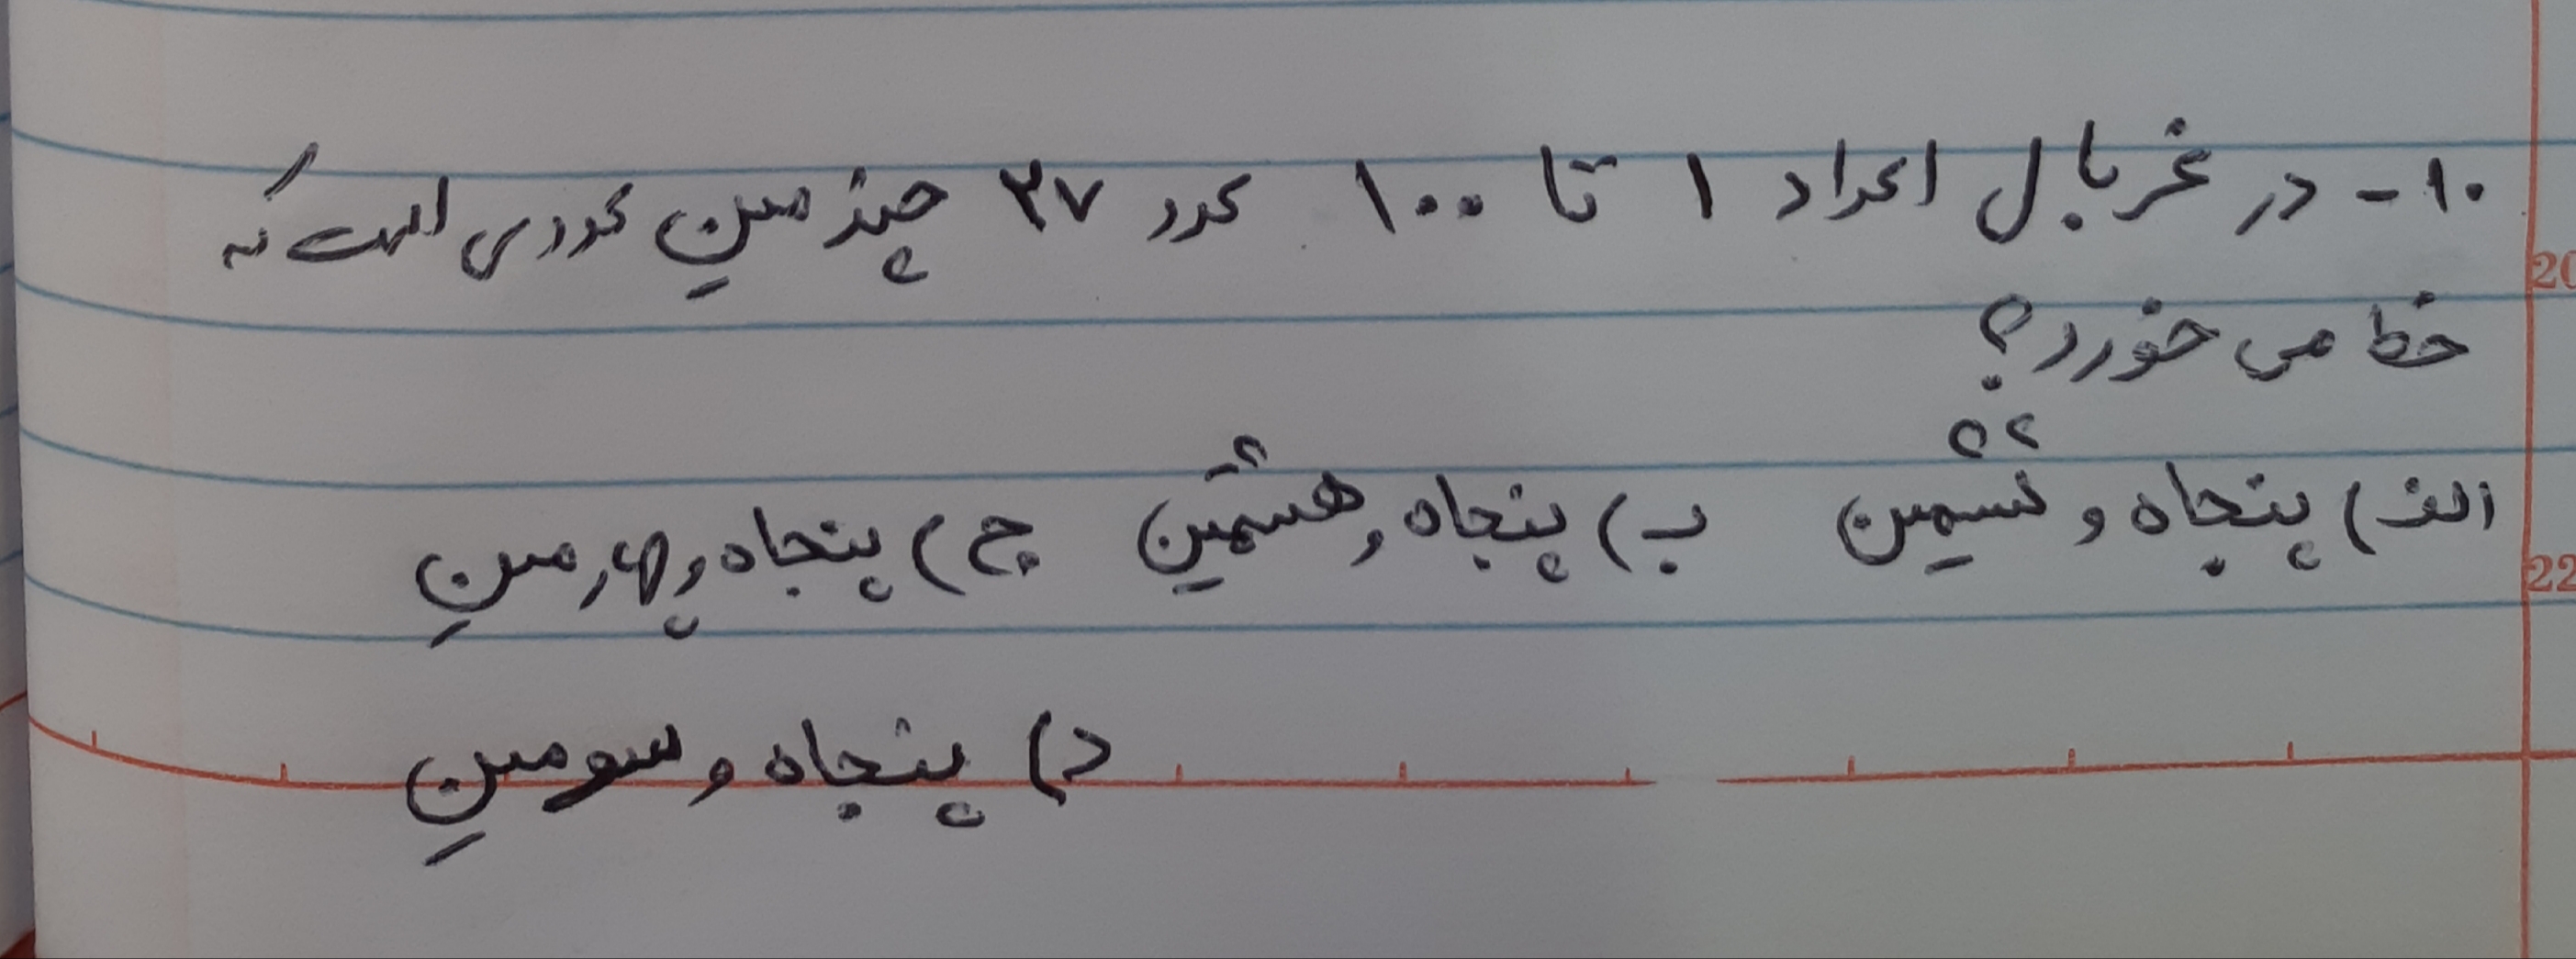 ۱۰- در غربال اعداد ۱ تا ۱۰۰ عدد ۳۷ چندمین عددی است که
خط می خورد؟
۵۶
الف) پنجاه و ششمین ب) پنجاه و هشتمین ج) پنجاه و چهارمین
د) پنجاه و سومین
20
22